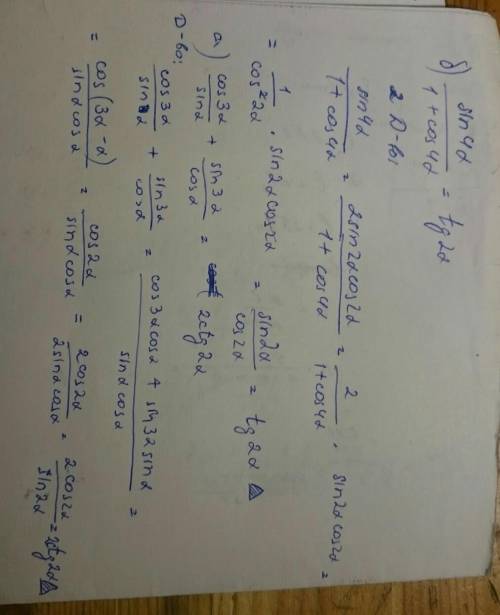 б) sin4α / (1 + cos4α) = tg2α
2 D-во:
sin4α / (1 + cos4α) = 2sin2αcos2α / (1 + cos4α) = 2 / (1 + cos4α) · sin2αcos2α =
= 1 / cos²2α · sin2αcos2α = sin2α / cos2α = tg2α △
а) cos3α / sinα + sin3α / cosα = 2ctg2α
D-во:
cos3α / sinα + sin3α / cosα = (cos3αcosα + sin3αsinα) / (sinαcosα) =
= cos(3α-α) / (sinαcosα) = cos2α / (sinαcosα) = 2cos2α / (2sinαcosα) = 2cos2α / sin2α = 2ctg2α △